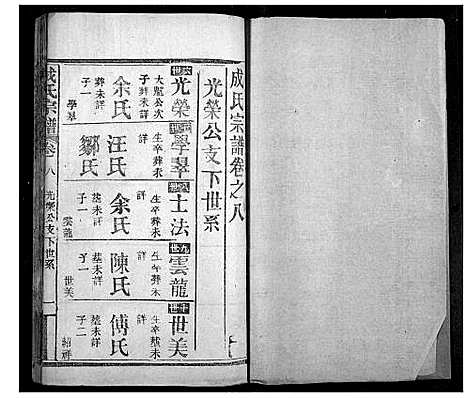 成氏宗譜卷之八
光榮公支下世系
六世
光榮
大魁公次
子生卒葬未詳
余氏
葬未詳
子一
學舉
七世
學舉
生卒葬未
詳
汪氏
鄒氏
八世
士法
生卒葬未
詳
余氏
墓未詳
子一
雲龍
九世
雲龍
生卒葬未
詳
陳氏
墓未詳
子一
世美
十世
世美
生卒墓未
詳
傅氏
墓未詳
子二
紹祥
成氏宗譜
卷八
光榮公支下世系
一